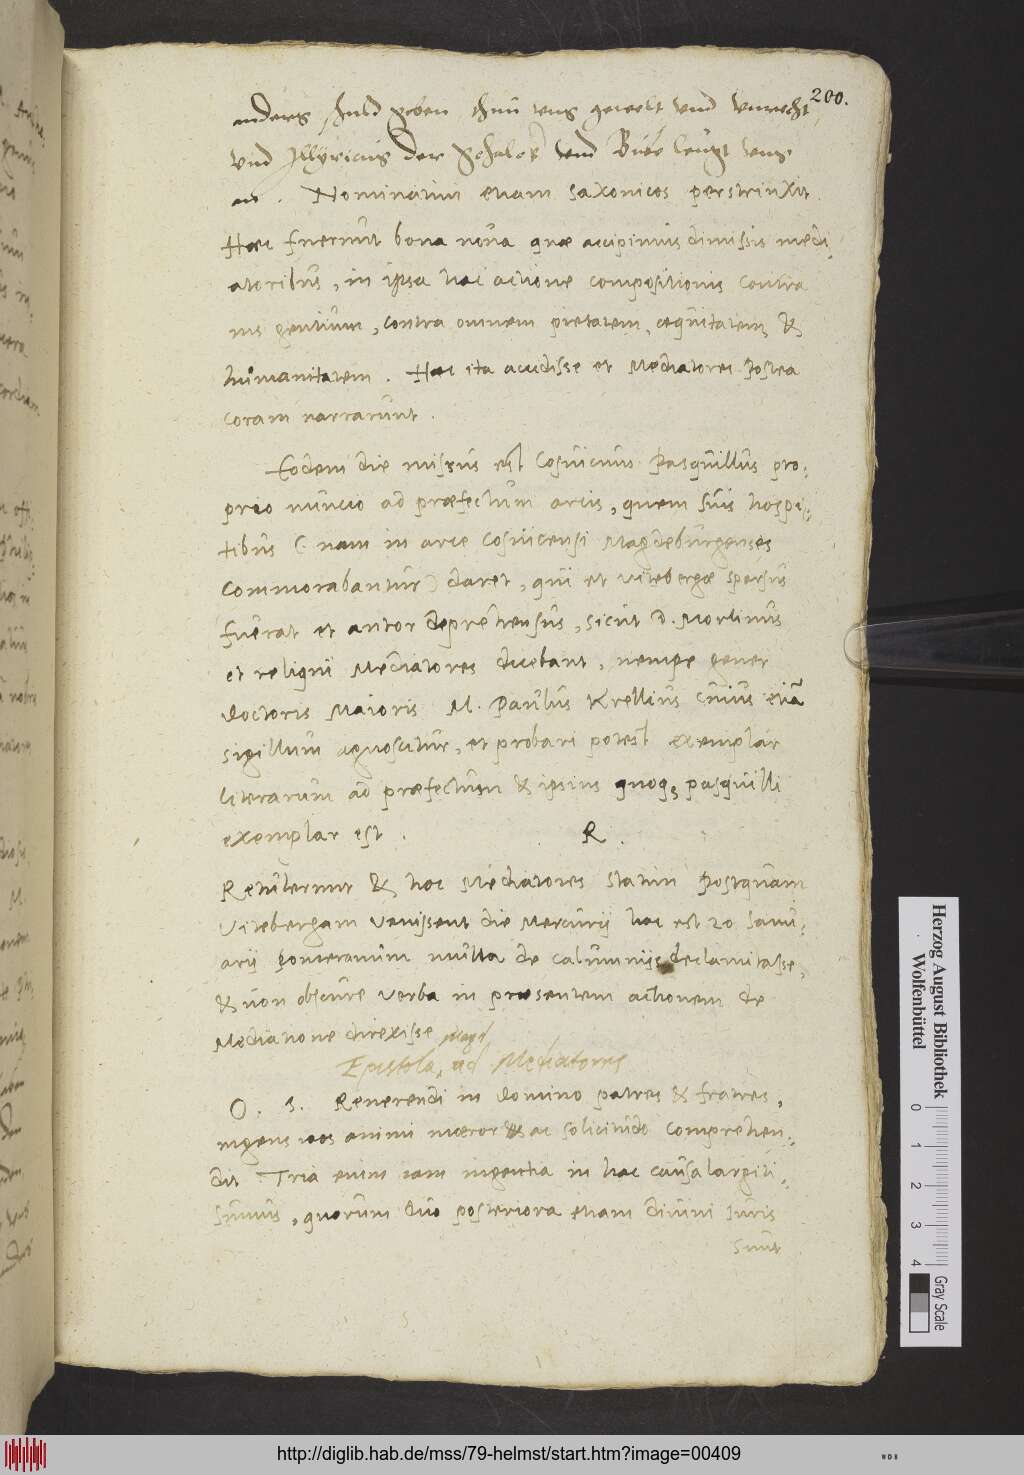 200.
anders schuld geben thun uns gewalt und unrecht,
und Illyricus der Schalck und Bube leugt uns
an. Nominatim etiam Saxonicos perstrinxit.
Haec fuerunt bona nova quae accipimus dimissis medi,
atoribus, in ipsa hac actione compositionis contra
ius gentium, contra omnem pietatem, aequitatem &
humanitatem. Haec ita accidisse et Mediatores postea
coram narrarunt.
Eodem die missus est Cosuicum Pasquillus pro,
prio nuncio ad praefectum arcis, quem suis hospi,
tibus (: nam in arce Cosuicensi Magdeburgenses
commorabantur) daret, qui et Vitebergae sparsus
fuerat et autor deprehensus, sicut D. Morlinus
et reliqui Mediatores dicebant, nempe gener
doctoris Maioris M. Paulus Krellius cuius etiā
sigillum agnoscitur, et probari potest exemplar
literarum ad praefectum & ipsius quoq; pasquilli
exemplar est.
R.
Retulerunt & hoc Mediatores statim postquam
Vitebergam venissent die Mercurij hoc est 20 Janu,
arij Pomeranum multa de calumnijs declamitasse,
& non obscure verba in praesentem actionem de
Mediatione direxisse
Magd
Epistola, ad Mediatores
O. S. Reverendi in domino patres & fratres,
ingens nos animi maeror & ac solicitudo comprehen,
dit. Tria enim iam ingentia in hac causa largiti
sumus, quorum duo posteriora etiam divini Juris
sunt
Herzog August Bibliothek
Wolfenbüttel
0 1 2 3 4
Gray Scale
http://diglib.hab.de/mss/79-helmst/start.htm?image=00409